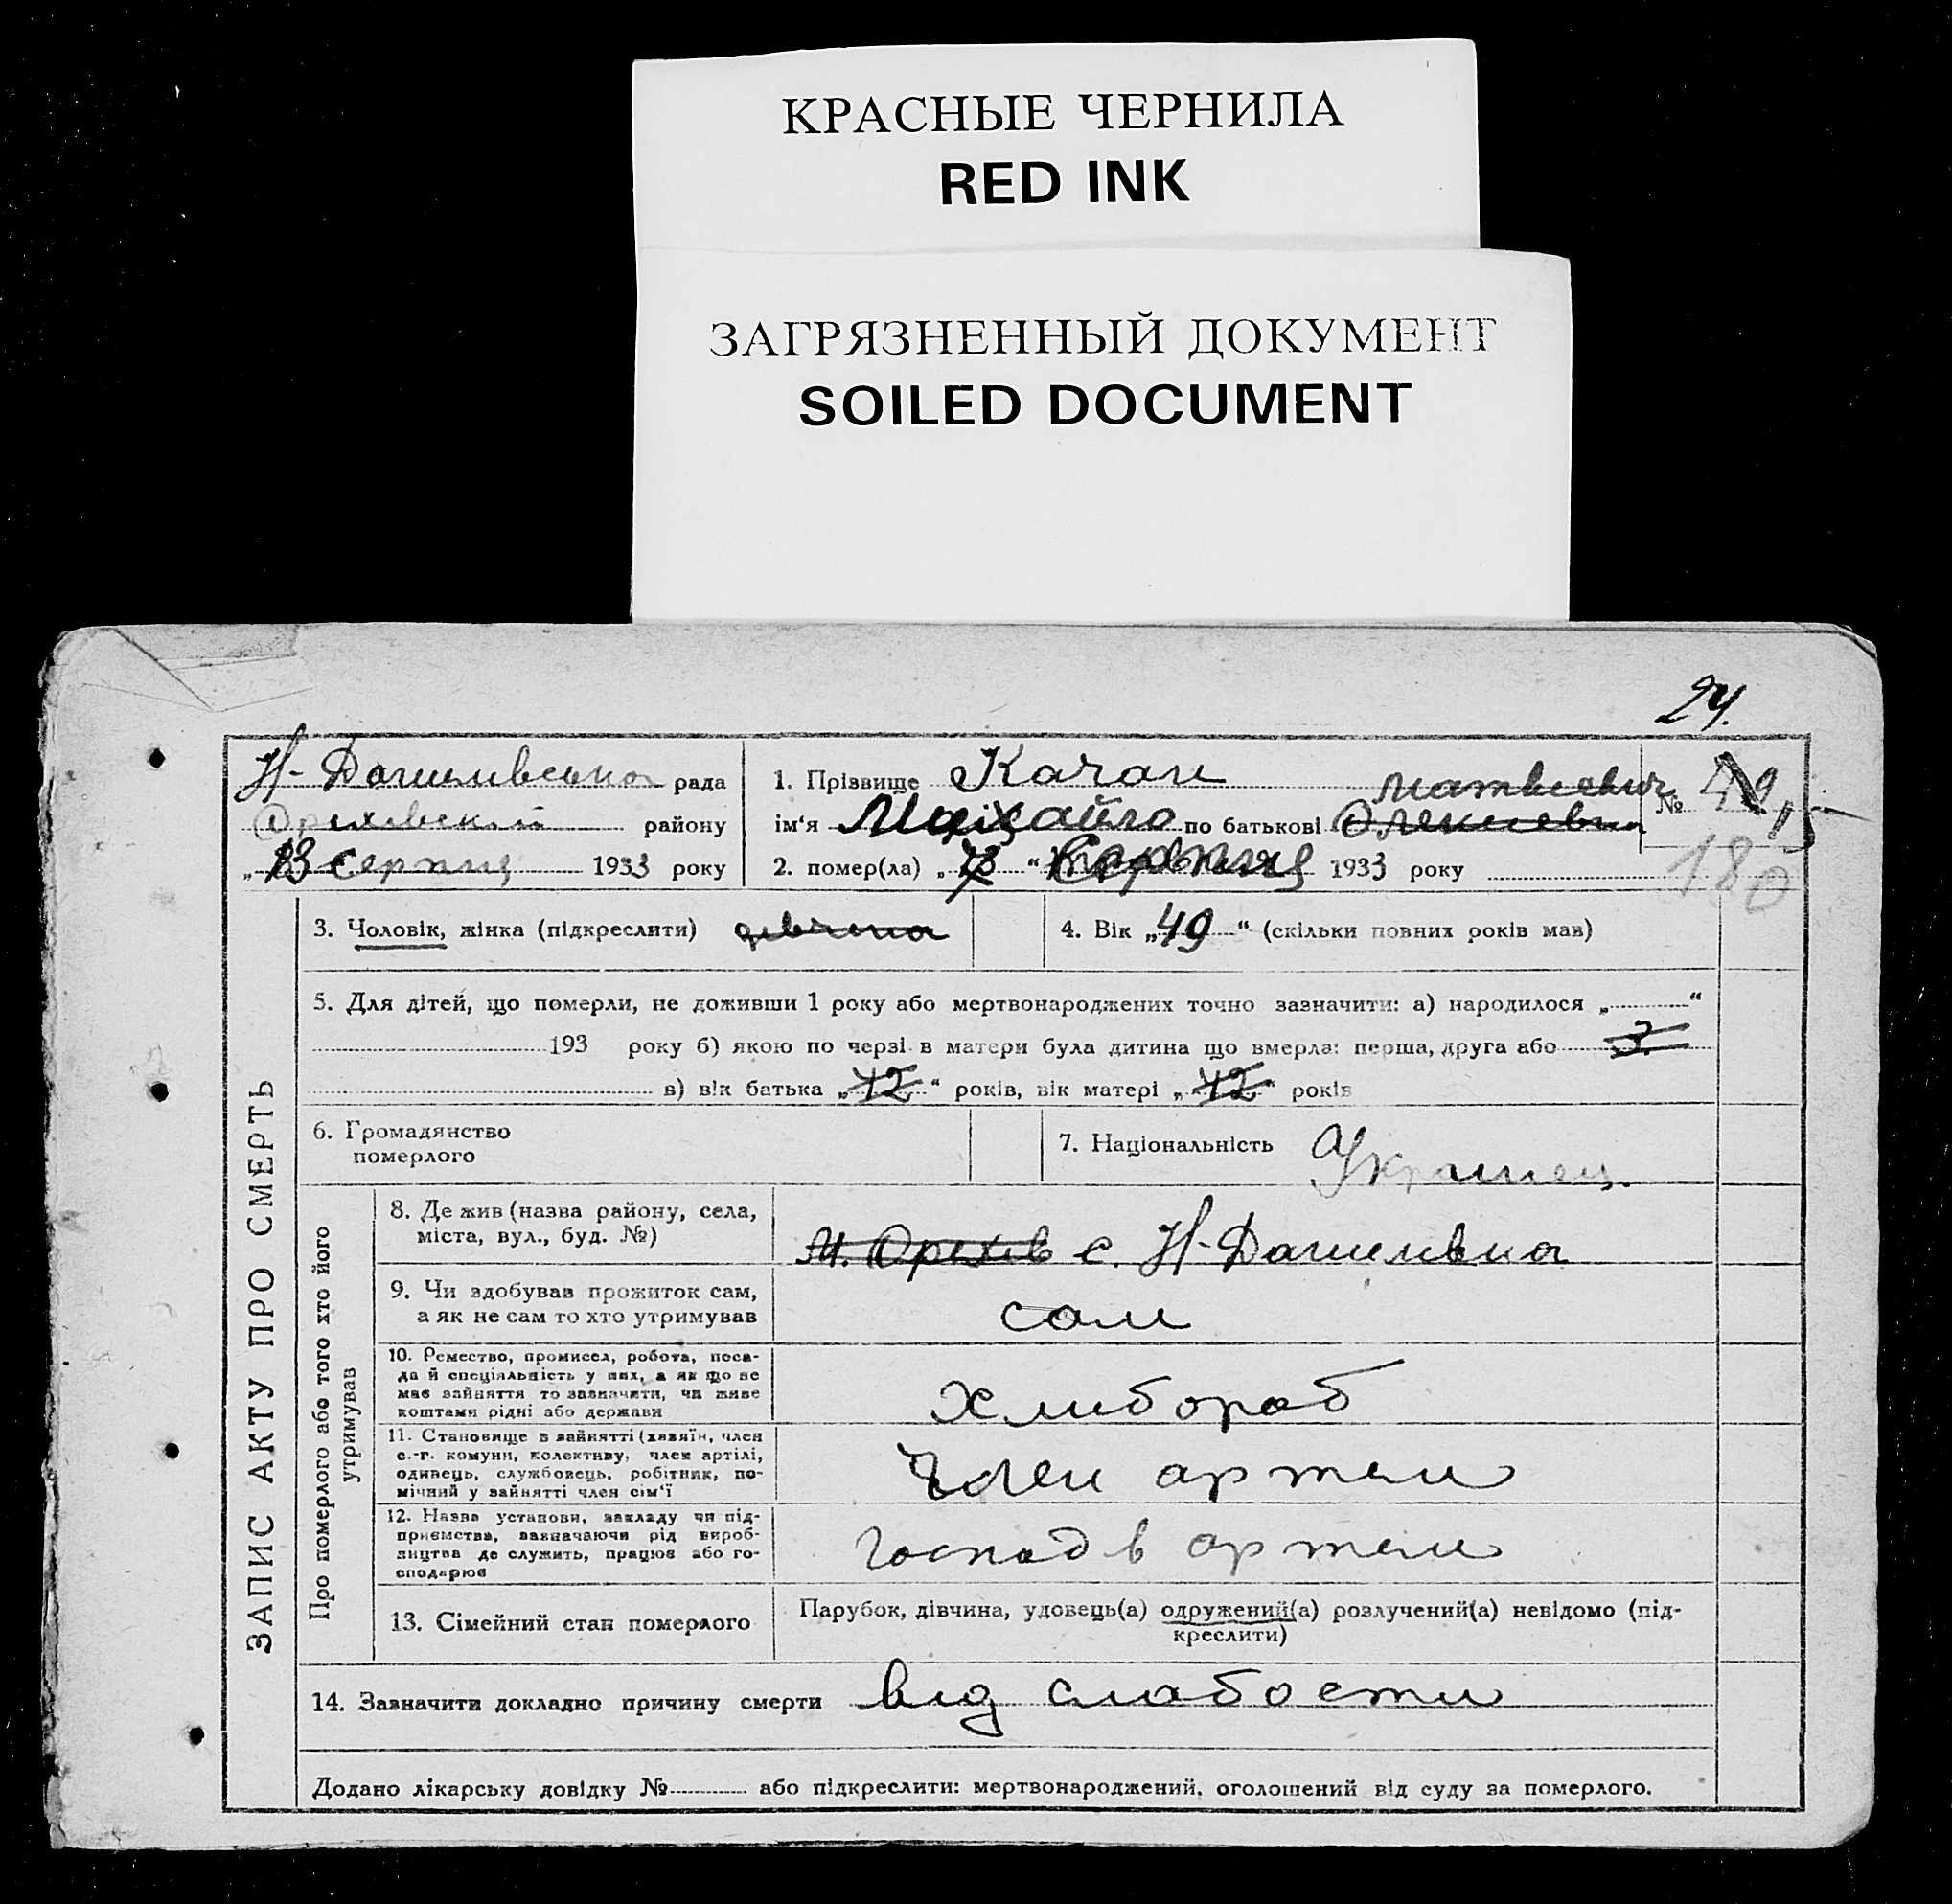 КРАСНЫЕ ЧЕРНИЛА
RED INK
ЗАГРЯЗНЕННЫЙ ДОКУМЕНТ
SOILED DOCUMENT
24.
Н-Данилівська рада
Орехівский району
„13 Серпня 1933 року
1. Прізвище Качан
Матвіевич
ім‘я Михайло по батькові Олексіевич
№
180
2. помер(ла) „ “ Серпня 1933 року
3. Чоловік, жінка (підкреслити) дівчина
4. Вік „49“ (скільки повних років мав)
5. Для дітей, що померли, не доживши 1 року або мертвонароджених точно зазначити: а) народилося „ “
193 року б) якою по черзі в матери була дитина що вмерла: перша, друга або 3
в) вік батька „42“ років, вік матері „42“ років
6. Громадянство
померлого
7. Національність Украинец.
ЗАПИС АКТУ ПРО СМЕРТЬ
Про померлого або того хто його
утримував
8. Де жив (назва району, села,
міста, вул., буд. №)
м. Орехів с. Н-Данилівка
9. Чи здобував прожиток сам,
а як не сам то хто утримував
сам
10. Ремество, промисел, робота, поса-
да й спеціяльність у них, а як що не
має зайняття то зазначити, чи живе
коштами рідні або держави
хлибороб
11. Становище в зайнятті (хазяїн, член
с.-г. комуни, колективу, член артілі,
одинець, службовець, робітник, по-
мічний у зайнятті член сім‘ї
Член артели
12. Назва установи, закладу чи під-
приємства, зазначаючи рід вироб-
ництва де служить, працює або го-
сподарює
Господ в артели
13. Сімейний стан померлого
Парубок, дівчина, удовець(а) одружений(а) розлучений(а) невідомо (під-
креслити)
14. Зазначити докладно причину смерти від слабости
Додано лікарську довідку № або підкреслити: мертвонароджений, оголошений від суду за померлого.